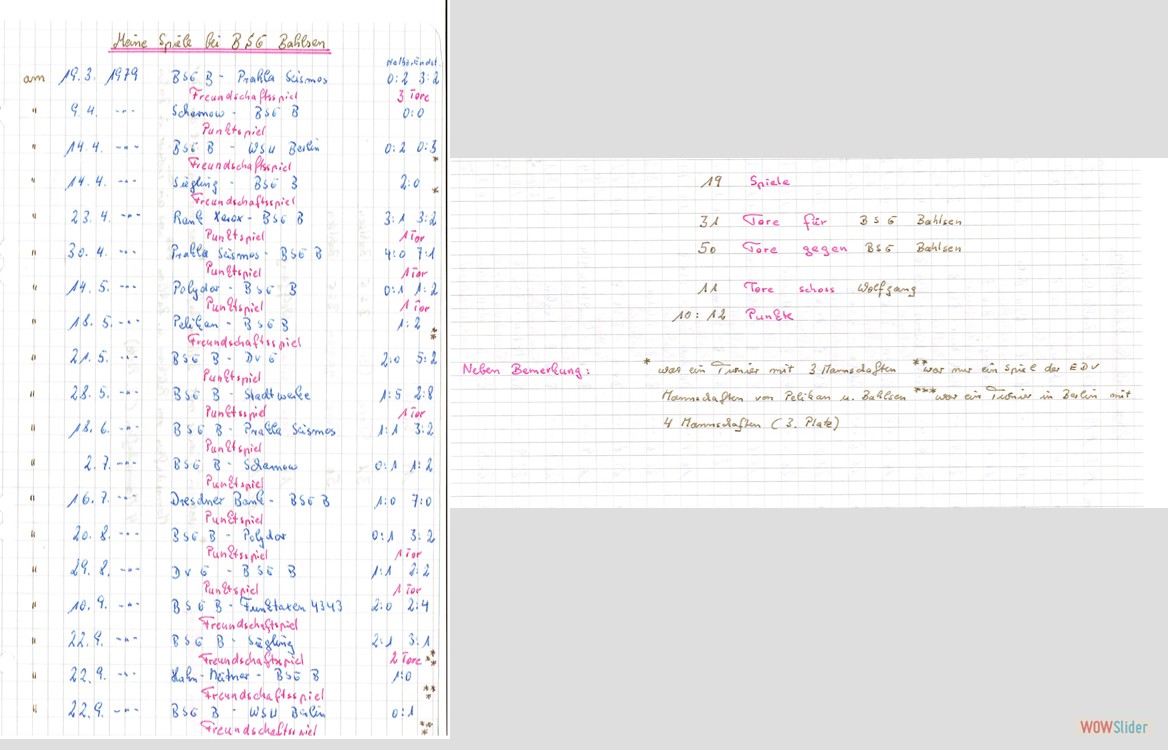 Meine Spiele bei BSG Bahlsen
Halbz. Endst.
am 19.3. 1979 BSG B - Prakla Seismos 0:2 3:2
Freundschaftsspiel 3 Tore
" 9.4. -"- Scharnow - BSG B 0:0
Punktspiel
" 14.4. -"- BSG B - WSU Berlin 0:2 0:3
Freundschaftsspiel *
" 14.4. -"- Siegling - BSG B 2:0
Freundschaftsspiel *
" 23.4. -"- Rank Xerox - BSG B 3:1 3:2
Punktspiel 1 Tor
" 30.4. -"- Prakla Seismos - BSG B 4:0 7:1
Punktspiel 1 Tor
" 14.5. -"- Polydor - BSG B 0:1 1:2
Punktspiel 1 Tor
" 18.5. -"- Pelikan - BSG B 1:2
Freundschaftsspiel **
" 21.5. -"- BSG B - DVG 2:0 5:2
Punktspiel
" 28.5. -"- BSG B - Stadtwerke 1:5 2:8
Punktspiel 1 Tor
" 18.6. -"- BSG B - Prakla Seismos 1:1 3:2
Punktspiel
" 2.7. -"- BSG B - Scharnow 0:1 1:2
Punktspiel
" 16.7. -"- Dresdner Bank - BSG B 1:0 7:0
Punktspiel
" 20.8. -"- BSG B - Polydor 0:1 3:2
Punktsspiel 1 Tor
" 29.8. -"- DVG - BSG B 1:1 2:2
Punktspiel 1 Tor
" 10.9. -"- BSG B - Funktaxen 4343 2:0 2:4
Freundschaftspiel
" 22.9. -"- BSG B - Siegling 2:1 3:1
Freundschaftsspiel 2 Tore ***
" 22.9. -"- Hahn-Meitner - BSG B 1:0
Freundschaftsspiel ***
" 22.9. -"- BSG B - WSU Berlin 0:1
Freundschaftsspiel ***
19 Spiele
31 Tore für BSG Bahlsen
50 Tore gegen BSG Bahlsen
11 Tore schoss Wolfgang
10:12 Punkte
Neben Bemerkung: * war ein Turnier mit 3 Mannschaften ** war nur ein Spiel der EDV
Mannschaften von Pelikan u. Bahlsen *** war ein Turnier in Berlin mit
4 Mannschaften (3. Platz)
WOWSlider